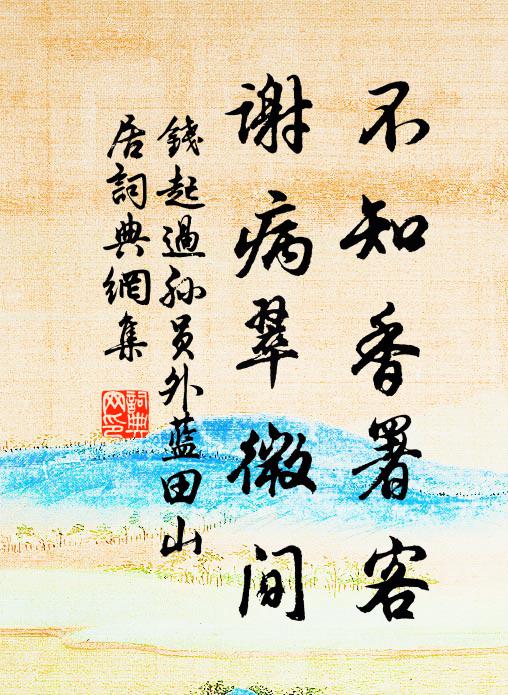 不知香署客
谢病翠微间
錢起過孙员外蓝田山
居詞典網集
詞典
网印